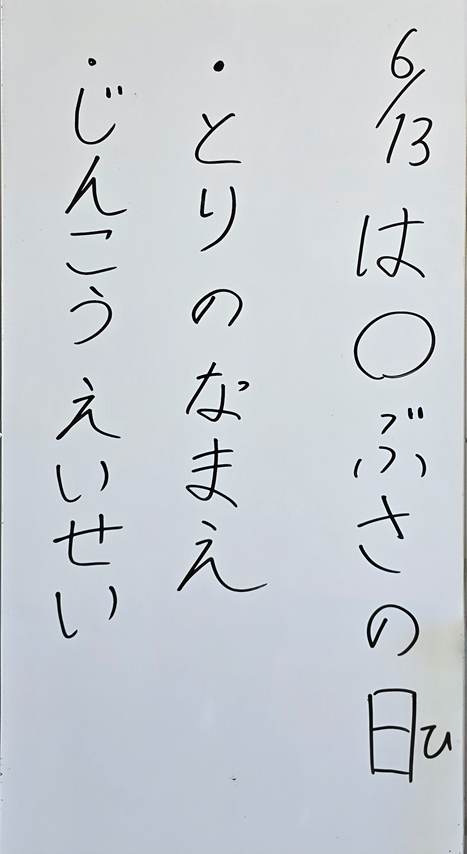 6/13は〇ぶさの日
ひ
・とりのなまえ
・じんこうえいせい